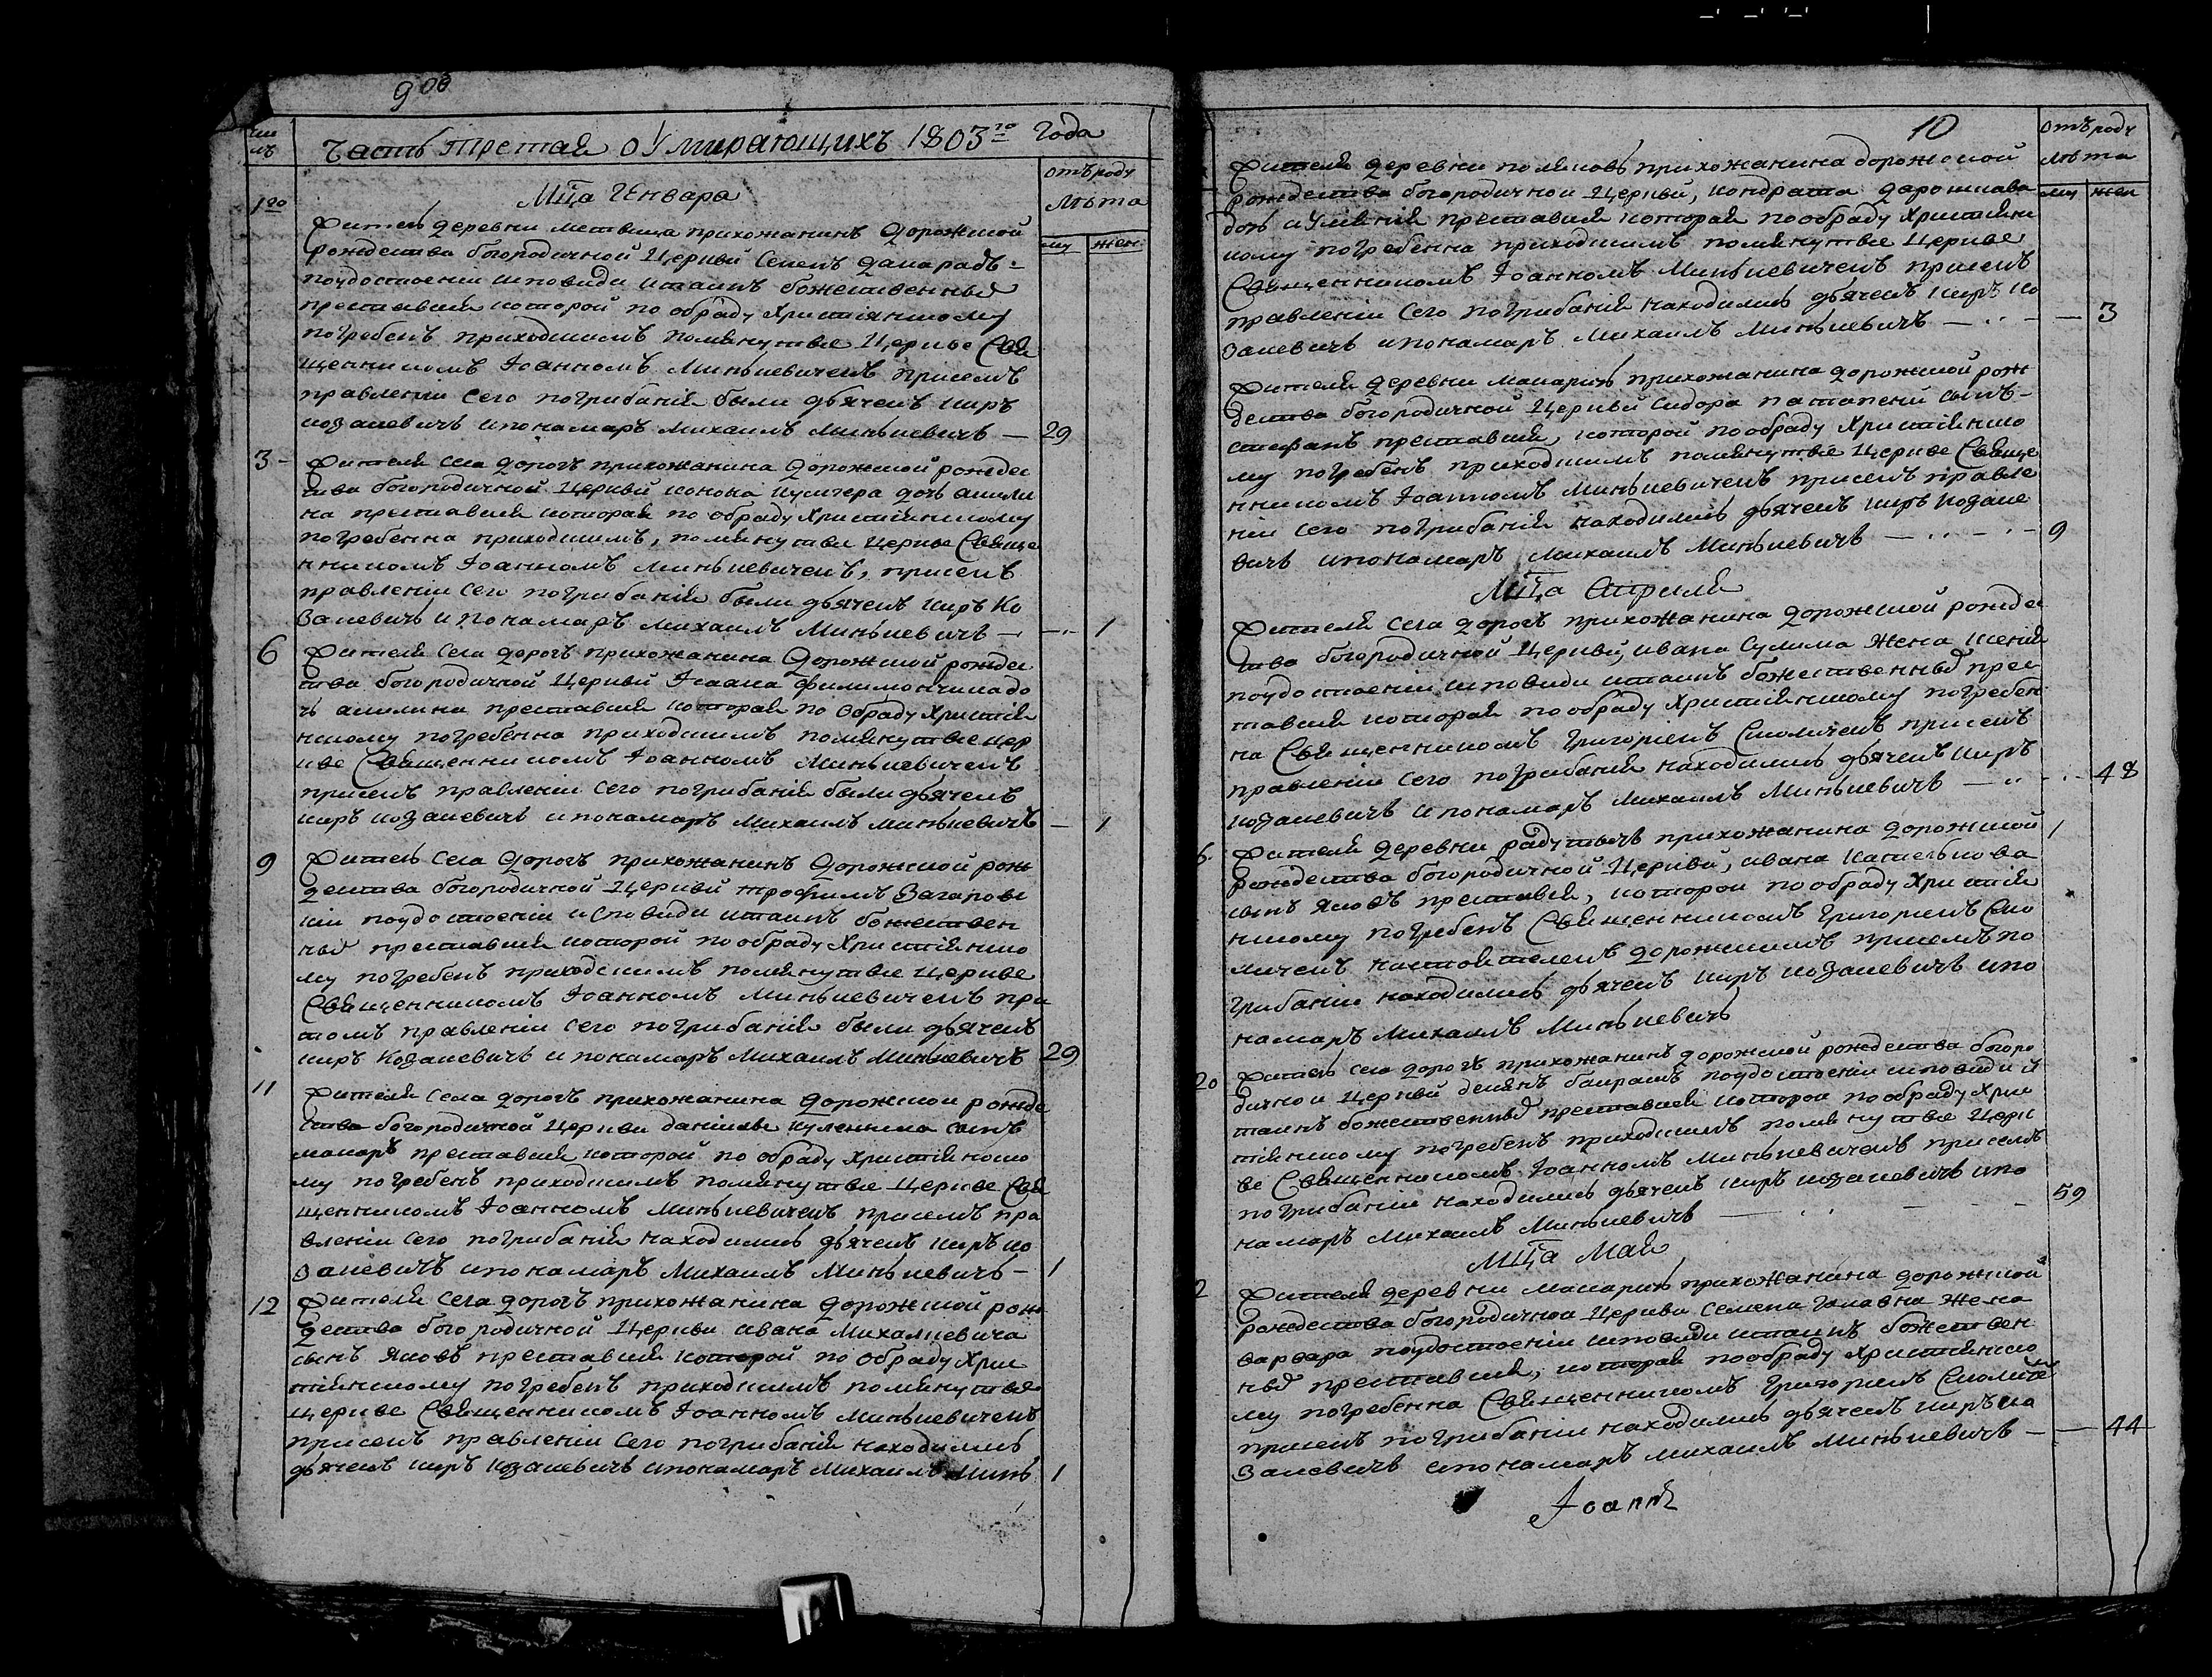 900
чис
лъ
Часть третая о Умирающихъ 1803го Года
отъ роду
лѣта
му жен
Мца Генвара
1го
Житель деревни прихожанинъ Дорожской
рождества богородичной Церкви Семенъ
поудостоеніи исповеди итаинъ божественныхъ
преставися которой по обряду христіянскому
погребенъ приходскимъ помянутвіе Церкве Свя
щенникомъ Іоанномъ Минкевичемъ присемъ
правленіи сего погрибанія были дьячекъ киръ
козакевичъ ипонамаръ Михаилъ Минкевичъ — 29
3 -
Жителя села дорогъ прихожанина Дорожской рождес
тва богородичной Церкви конона дочь акили
на преставися которая по обряду христіянскому
погребенна приходскимъ, помянутвіе Церкве Свяще
нникомъ Іоанномъ Минкевичемъ, присемъ
правленіи сего погрибанія были дьячекъ киръ Ко
закевичъ и понамаръ Михаилъ Минкевичъ — 1
6
Жителя села дорогъ прихожанина Дорожской рождес
тва богородичной Церкви Исаака до
чь акилина преставися которая по обряду христія
нскому погребенна приходскимъ помянутвіе цер
кве Священникомъ Іоанномъ Минкевичемъ
присемъ правленіи сего погрибанія были дьячекъ
киръ козакевичъ и понамаръ Михаилъ Минкевичъ — 1
9
Житель села Дорогъ прихожанинъ Дорожской рож
дества богородичной Церкви трофимъ
поудостоеніи исповиди итаинъ божествен
ныхъ преставися которой по обряду христіянско
му погребенъ приходскимъ помянутвіе церкве
Священникомъ Іоанномъ Минкевичемъ при
томъ правленіи сего погрибанія были дьячекъ
киръ Козакевичъ и понамаръ Михаилъ Минкевичъ 29
11
Жителя Села дорогъ прихожанина Дорожской рожде
ства богородичной Церкви сынъ
макаръ преставися которой по обряду христіянско
му погребенъ приходскимъ помянутвіе Церкве Свя
щенникомъ Іоанномъ Минкевичемъ присемъ пра
вленіи сего погрибанія находились дьячекъ киръ ко
закевичъ ипонамаръ Михаилъ Минкевичъ — 1
12
Жителя Села дорогъ прихожанина Дорожской рож
дества богородичной Церкви ивана Михалкевича
сынъ Яковъ преставися которой по обряду хрис
тіянскому погребенъ приходскимъ помянутвія
церкве Священникомъ Іоанномъ Минкевичемъ
присемъ правленіи сего погрибанія находились
дьячекъ киръ козакевичъ ипонамаръ Михаилъ Минк 1
10
отъ роду
лѣта
му жен
Жителя Деревни прихожанина дорожской
рождества богородичной Церкви, кондрата
дочь преставися которая по обряду христіянс
кому погребенна приходскимъ помянутвіе Церкве
Священникомъ Іоанномъ Минкевичемъ присемъ
правленіи сего погрибанія находились дьячекъ киръ ко
закевичъ ипонамаръ Михаилъ Минкевичъ — 3
Жителя деревни прихожанина дорожской рож
дества богородичной Церкви Сидора сынъ
стефанъ преставися, которой по обряду христіянско
му погребенъ приходскимъ помянутвіе Церкве Свяще
нникомъ Іоанномъ Минкевичемъ присемъ правле
ніи сего погрибанія находились дьячекъ киръ козаке
вичъ ипонамаръ Михаилъ Минкевичъ — 9
Мца Априля
Жителя села дорогъ прихожанина дорожской рождес
тва богородичной Церкви, ивана Сулима Жена ксенія
поудостоеніи исповиди итаинъ божественныхъ прес
тавися которая по обряду христіянскому погребен
на Священникомъ Григоріемъ Смоличемъ присемъ
правленіи сего погрибанія находились дьячекъ киръ
козакевичъ ипонамаръ Михаилъ Минкевичъ — 48
6
Жителя деревни прихожанина дорожской 1
рождества богородичной Церкви, ивана
сынъ Яковъ преставися, которой по обряду христія
нскому погребенъ Священникомъ Григоріемъ Смо
личемъ настоятелемъ дорожскимъ присемъ по
грибаніи находились дьячекъ киръ козакевичъ ипо
намаръ Михаилъ Минкевичъ
20
Житель села дорогъ прихожанинъ дорожской рождества богоро
дичной Церкви поудостоеніи исповиди и
таинъ божественныхъ преставися которой по обряду хрис
тіянскому погребенъ приходскимъ помянутвіе Церк
ве Священникомъ Іоанномъ Минкевичемъ присемъ
погрибаніи находились дьячекъ киръ козакевичъ ипо
намаръ Михаилъ Минкевичъ — 59
Мца Мая
2
Жителя деревни прихожанина дорожской
рождества богородичной Церкви Семена жена
варвара поудостоеніи исповиди итаинъ божествен
ныхъ преставися, которая по обряду христіянско
му погребенна Священникомъ Григоріемъ Смоличе
присемъ погрибаніи находились дьячекъ киръ ко
закевичъ ипонамаръ Михаилъ Минкевичъ — 44
Іоаннъ